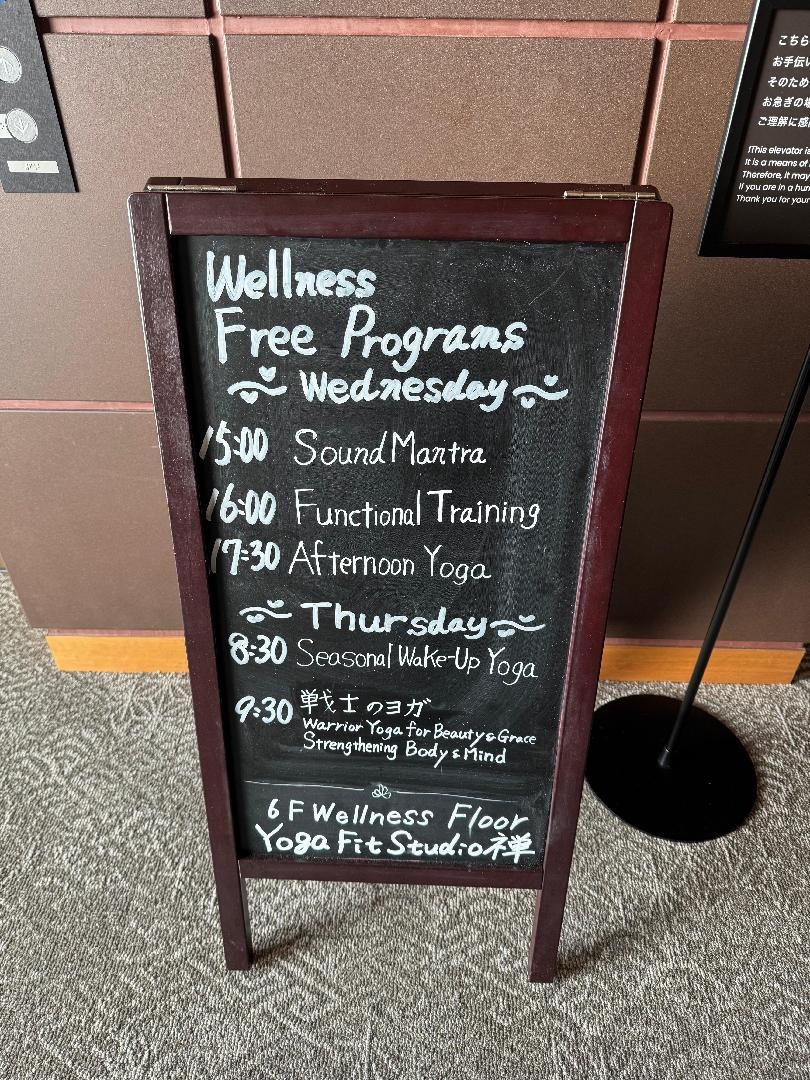 Wellness
Free Programs
Wednesday
15:00 Sound Mantra
16:00 Functional Training
17:30 Afternoon Yoga
Thursday
8:30 Seasonal Wake-Up Yoga
9:30 戦士のヨガ
Warrior Yoga for Beauty & Grace
Strengthening Body & Mind
6F Wellness Floor
Yoga Fit Studio 禅
こちら
お手伝い
そのため
お急ぎの場
ご理解に感
This elevator is
It is a means of
Therefore, it may
If you are in a hur
Thank you for your